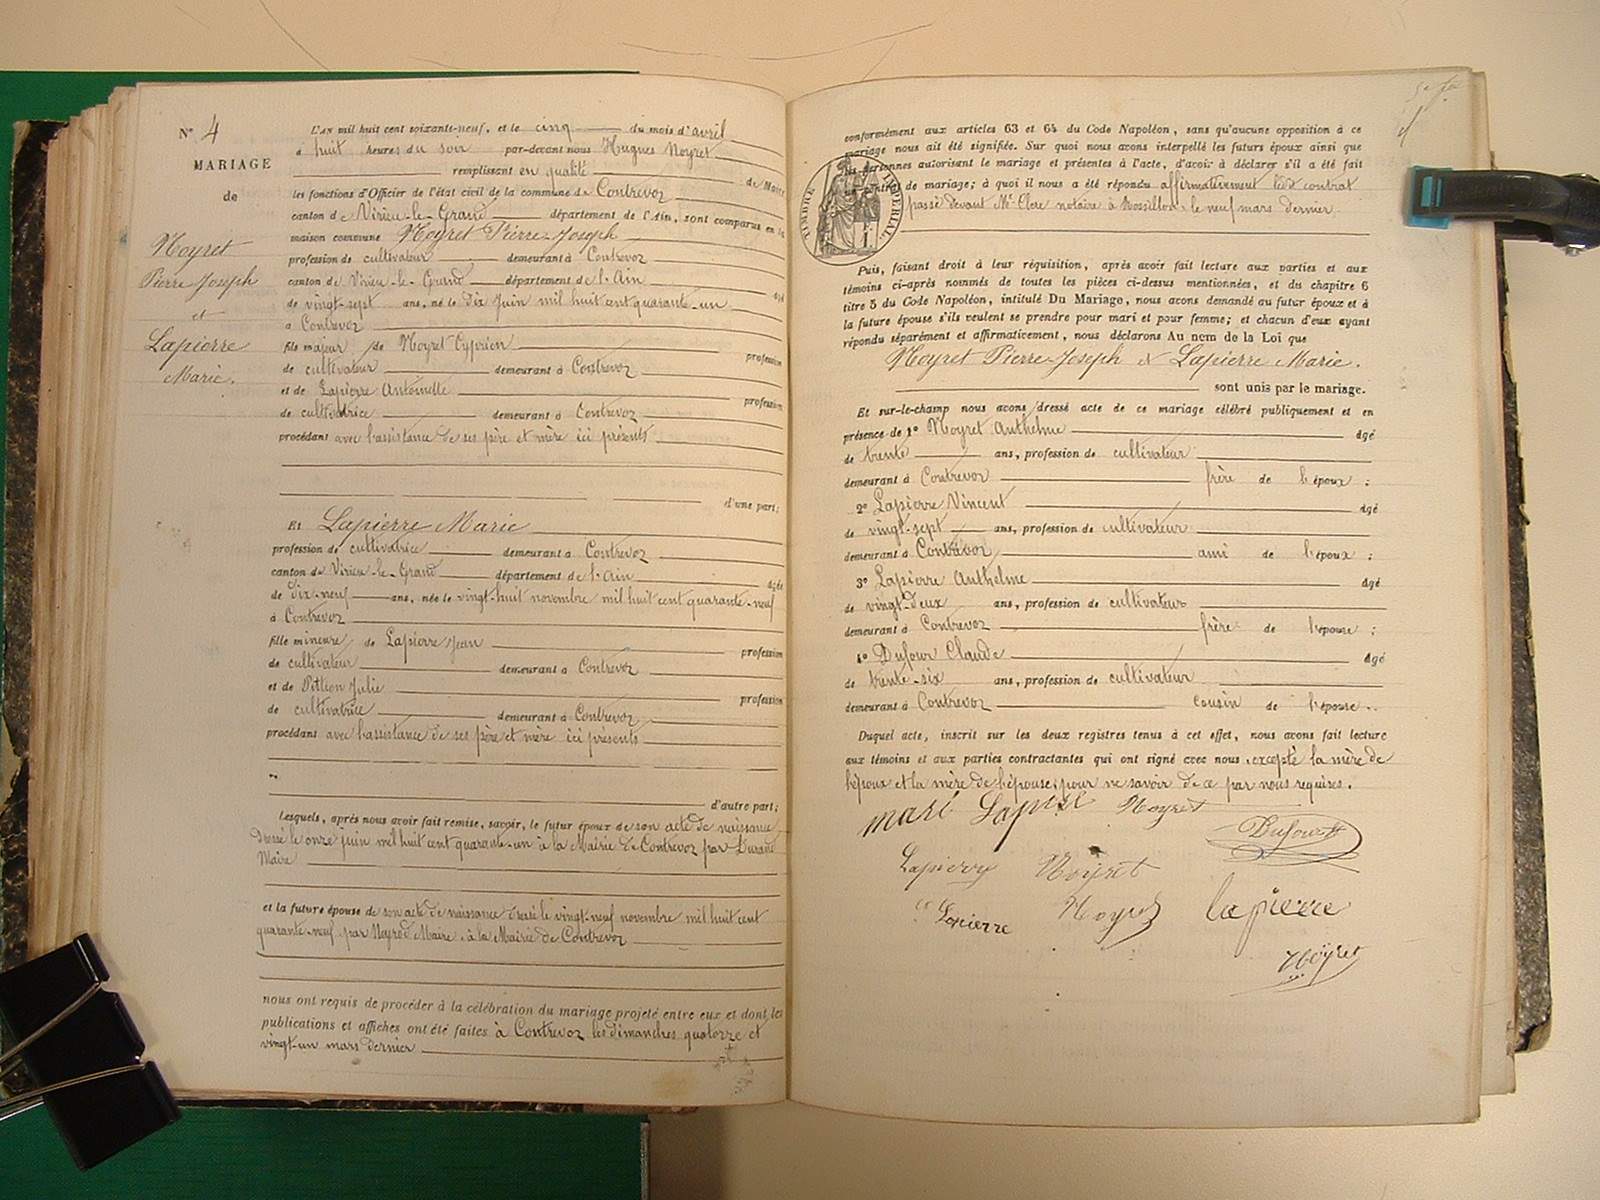 N° 4
MARIAGE
de
Noyret
Pierre-Joseph
et
Lapierre
Marie.
L'AN mil huit cent soixante-neuf, et le cinq du mois d'avril
à huit heures du soir par-devant nous Hugues Noyret
remplissant en qualité de Maire
les fonctions d'Officier de l'état civil de la commune de Contrevoz
canton de Virieu-le-Grand département de l'Ain, sont comparus en la
maison commune Noyret Pierre-Joseph
profession de cultivateur demeurant à Contrevoz
canton de Virieu-le-Grand département de l'Ain âgé
de vingt-sept ans, né le dix Juin mil huit cent quarante-un
à Contrevoz
fils majeur de Noyret Cyprien profession
de cultivateur demeurant à Contrevoz
et de Lapierre Antoinette profession
de cultivatrice demeurant à Contrevoz
procédant avec l'assistance de ses père et mère ici présents
d'une part;
Et Lapierre Marie
profession de cultivatrice demeurant à Contrevoz
canton de Virieu-le-Grand département de l'Ain âgée
de dix-neuf ans, née le vingt-huit novembre mil huit cent quarante-neuf
à Contrevoz
fille mineure de Lapierre Jean profession
de cultivateur demeurant à Contrevoz
et de Pittion Julie profession
de cultivatrice demeurant à Contrevoz
procédant avec l'assistance de ses père et mère ici présents
d'autre part;
Lesquels, après nous avoir fait remise, savoir, le futur époux de son acte de naissance
dressé le onze juin mil huit cent quarante-un à la Mairie de Contrevoz par Durand
Maire
et la future épouse de son acte de naissance dressé le vingt-neuf novembre mil huit cent
quarante-neuf par Neyrod Maire, à la Mairie de Contrevoz
nous ont requis de procéder à la célébration du mariage projeté entre eux et dont les
publications et affiches ont été faites à Contrevoz les dimanches quatorze et
vingt-un mars dernier
conformément aux articles 63 et 64 du Code Napoléon, sans qu'aucune opposition à ce
mariage nous ait été signifiée. Sur quoi nous avons interpellé les futurs époux ainsi que
les personnes autorisant le mariage et présentes à l'acte, d'avoir à déclarer s'il a été fait
un contrat de mariage; à quoi il nous a été répondu affirmativement led. contrat
passé devant Me Clerc notaire à Rossillon, le neuf mars dernier
TIMBRE IMPERIAL
Puis, faisant droit à leur réquisition, après avoir fait lecture aux parties et aux
témoins ci-après nommés de toutes les pièces ci-dessus mentionnées, et du chapitre 6
titre 5 du Code Napoléon, intitulé Du Mariage, nous avons demandé au futur époux et à
la future épouse s'ils veulent se prendre pour mari et pour femme; et chacun d'eux ayant
répondu séparément et affirmativement, nous déclarons Au nom de la Loi que
Noyret Pierre-Joseph & Lapierre Marie.
sont unis par le mariage.
Et sur-le-champ nous avons dressé acte de ce mariage célébré publiquement et en
présence de 1° Noyret Anthelme âgé
de trente ans, profession de cultivateur
demeurant à Contrevoz frère de l'époux;
2° Lapierre Vincent âgé
de vingt-sept ans, profession de cultivateur
demeurant à Contrevoz ami de l'époux;
3° Lapierre Anthelme âgé
de vingt-deux ans, profession de cultivateur
demeurant à Contrevoz frère de l'épouse;
4° Dufour Claude âgé
de trente-six ans, profession de cultivateur
demeurant à Contrevoz cousin de l'épouse.
Duquel acte, inscrit sur les deux registres tenus à cet effet, nous avons fait lecture
aux témoins et aux parties contractantes qui ont signé avec nous, excepté la mère de
l'époux et la mère de l'épouse, pour ne savoir de ce par nous requises.
mari Lapirre Noyret
Dufour
Lapierre Noyret
Lapierre Noyret lapierre
Noyret